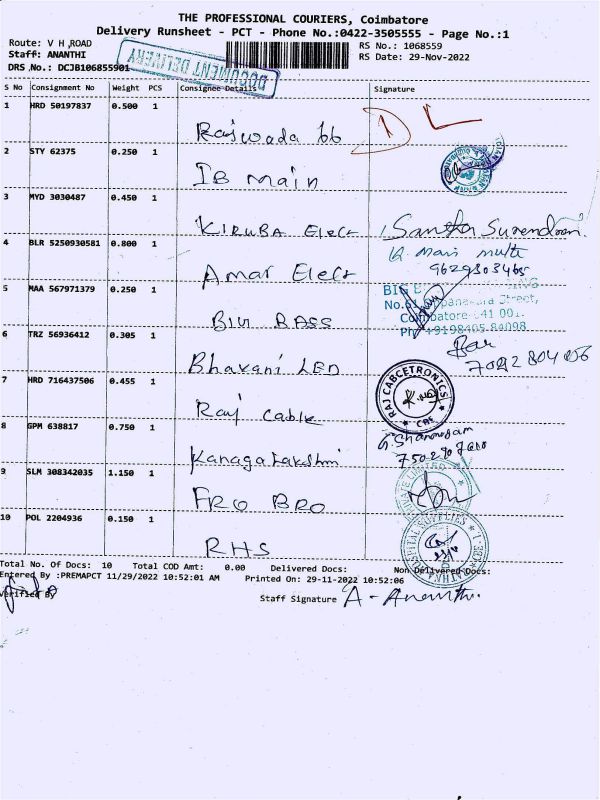 THE PROFESSIONAL COURIERS, Coimbatore
Delivery Runsheet - PCT - Phone No.:0422-3505555 - Page No.:1
Route: V H ,ROAD
RS No.: 1068559
Staff: ANANTHI
RS Date: 29-Nov-2022
DRS No.: DCJB106855901
DOCUMENT DELIVERY
S No Consignment No Weight PCS Consignee Details Signature
1 HRD 50197837 0.500 1
Rajwada bb
2 STY 62375 0.250 1
IB main
3 MYD 3030487 0.450 1
KIRUBA Elect
4 BLR 5250930581 0.800 1
Amar Elect
9629803465
5 MAA 567971379 0.250 1
BIG
No.61
Street,
Coimbatore-641 001.
Ph: +9198405 84098
6 TRZ 56936412 0.305 1
Bhavani LED
7 HRD 716437506 0.455 1
Raj Cable
RAJ CABCETRONICS
CBE
8 GPM 638817 0.750 1
Kanagalakshmi
G. Shanmugam
9 SLM 308342035 1.150 1
FRG BRO
LIMITED
10 POL 2204936 0.150 1
RHS
HOSPITAL SUPPLIES
Total No. Of Docs: 10 Total COD Amt: 0.00 Delivered Docs: Non Delivered Docs:
Entered By :PREMAPCT 11/29/2022 10:52:01 AM Printed On: 29-11-2022 10:52:06
Verified By
Staff Signature A - Ananthi.